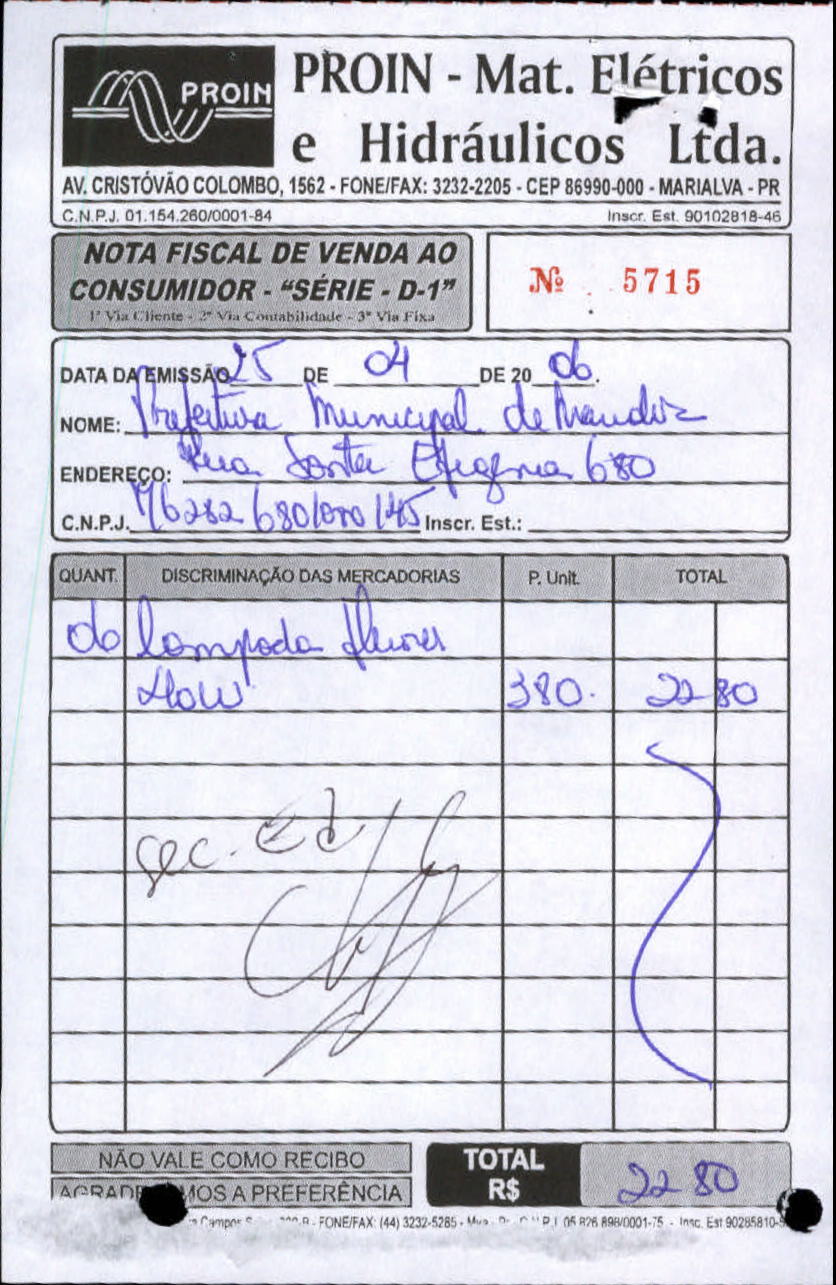 PROIN
PROIN - Mat. Elétricos
e Hidráulicos Ltda.
AV. CRISTÓVÃO COLOMBO, 1562 - FONE/FAX: 3232-2205 - CEP 86990-000 - MARIALVA - PR
C.N.P.J. 01.154.260/0001-84 Inscr. Est. 90102818-46
NOTA FISCAL DE VENDA AO
CONSUMIDOR - “SÉRIE - D-1”
1ª Via Cliente - 2ª Via Contabilidade - 3ª Via Fixa
Nº 5715
DATA DA EMISSÃO 25 DE 04 DE 20 06.
NOME: Prefeitura Municipal de
ENDEREÇO: Rua Santa Efigenia 680
C.N.P.J. 76282 680/000 145 Inscr. Est.:
QUANT. DISCRIMINAÇÃO DAS MERCADORIAS P. Unit. TOTAL
06 Lampada fluores
40W 380. 22 80
sec. Ed
NÃO VALE COMO RECIBO
MOS A PREFERÊNCIA
TOTAL
R$ 22 80
Campos FONE/FAX: (44) 3232-5285 - 05 826 898/0001-75 - Insc. Est 90285810-